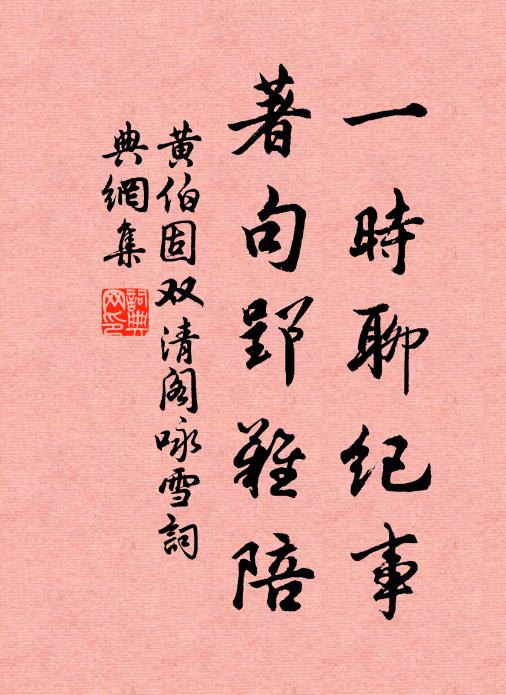 一時聊紀事
著句郢難陪
黄伯固双清阁咏雪詞
典網集
詞典網印